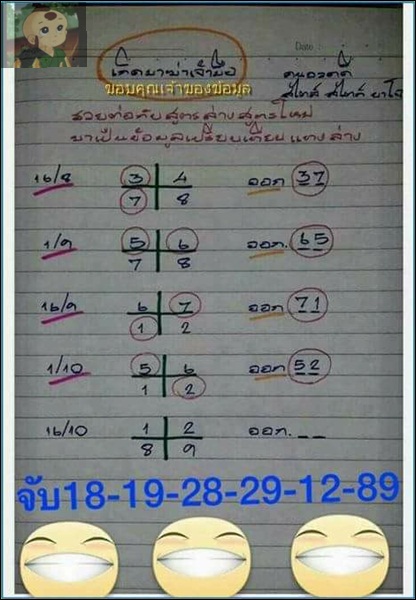 Date
เด็ดมาฆ่าเจ้ามือ
ขอบคุณเจ้าของข้อมูล
คนอวดดี
สไตล์ สไตล์ ยาโอ
รวยต่อกับสูตรล่างสูตรใหม่
มาเป็นข้อมูลเปรียบเทียบ แทงล่าง
16/8 3 4 ออก 37
7 8
1/9 5 6 ออก. 65
7 8
16/9 6 7 ออก 71
1 2
1/10 5 6 ออก 52
1 2
16/10 1 2 ออก. _ _
8 9
จับ18-19-28-29-12-89